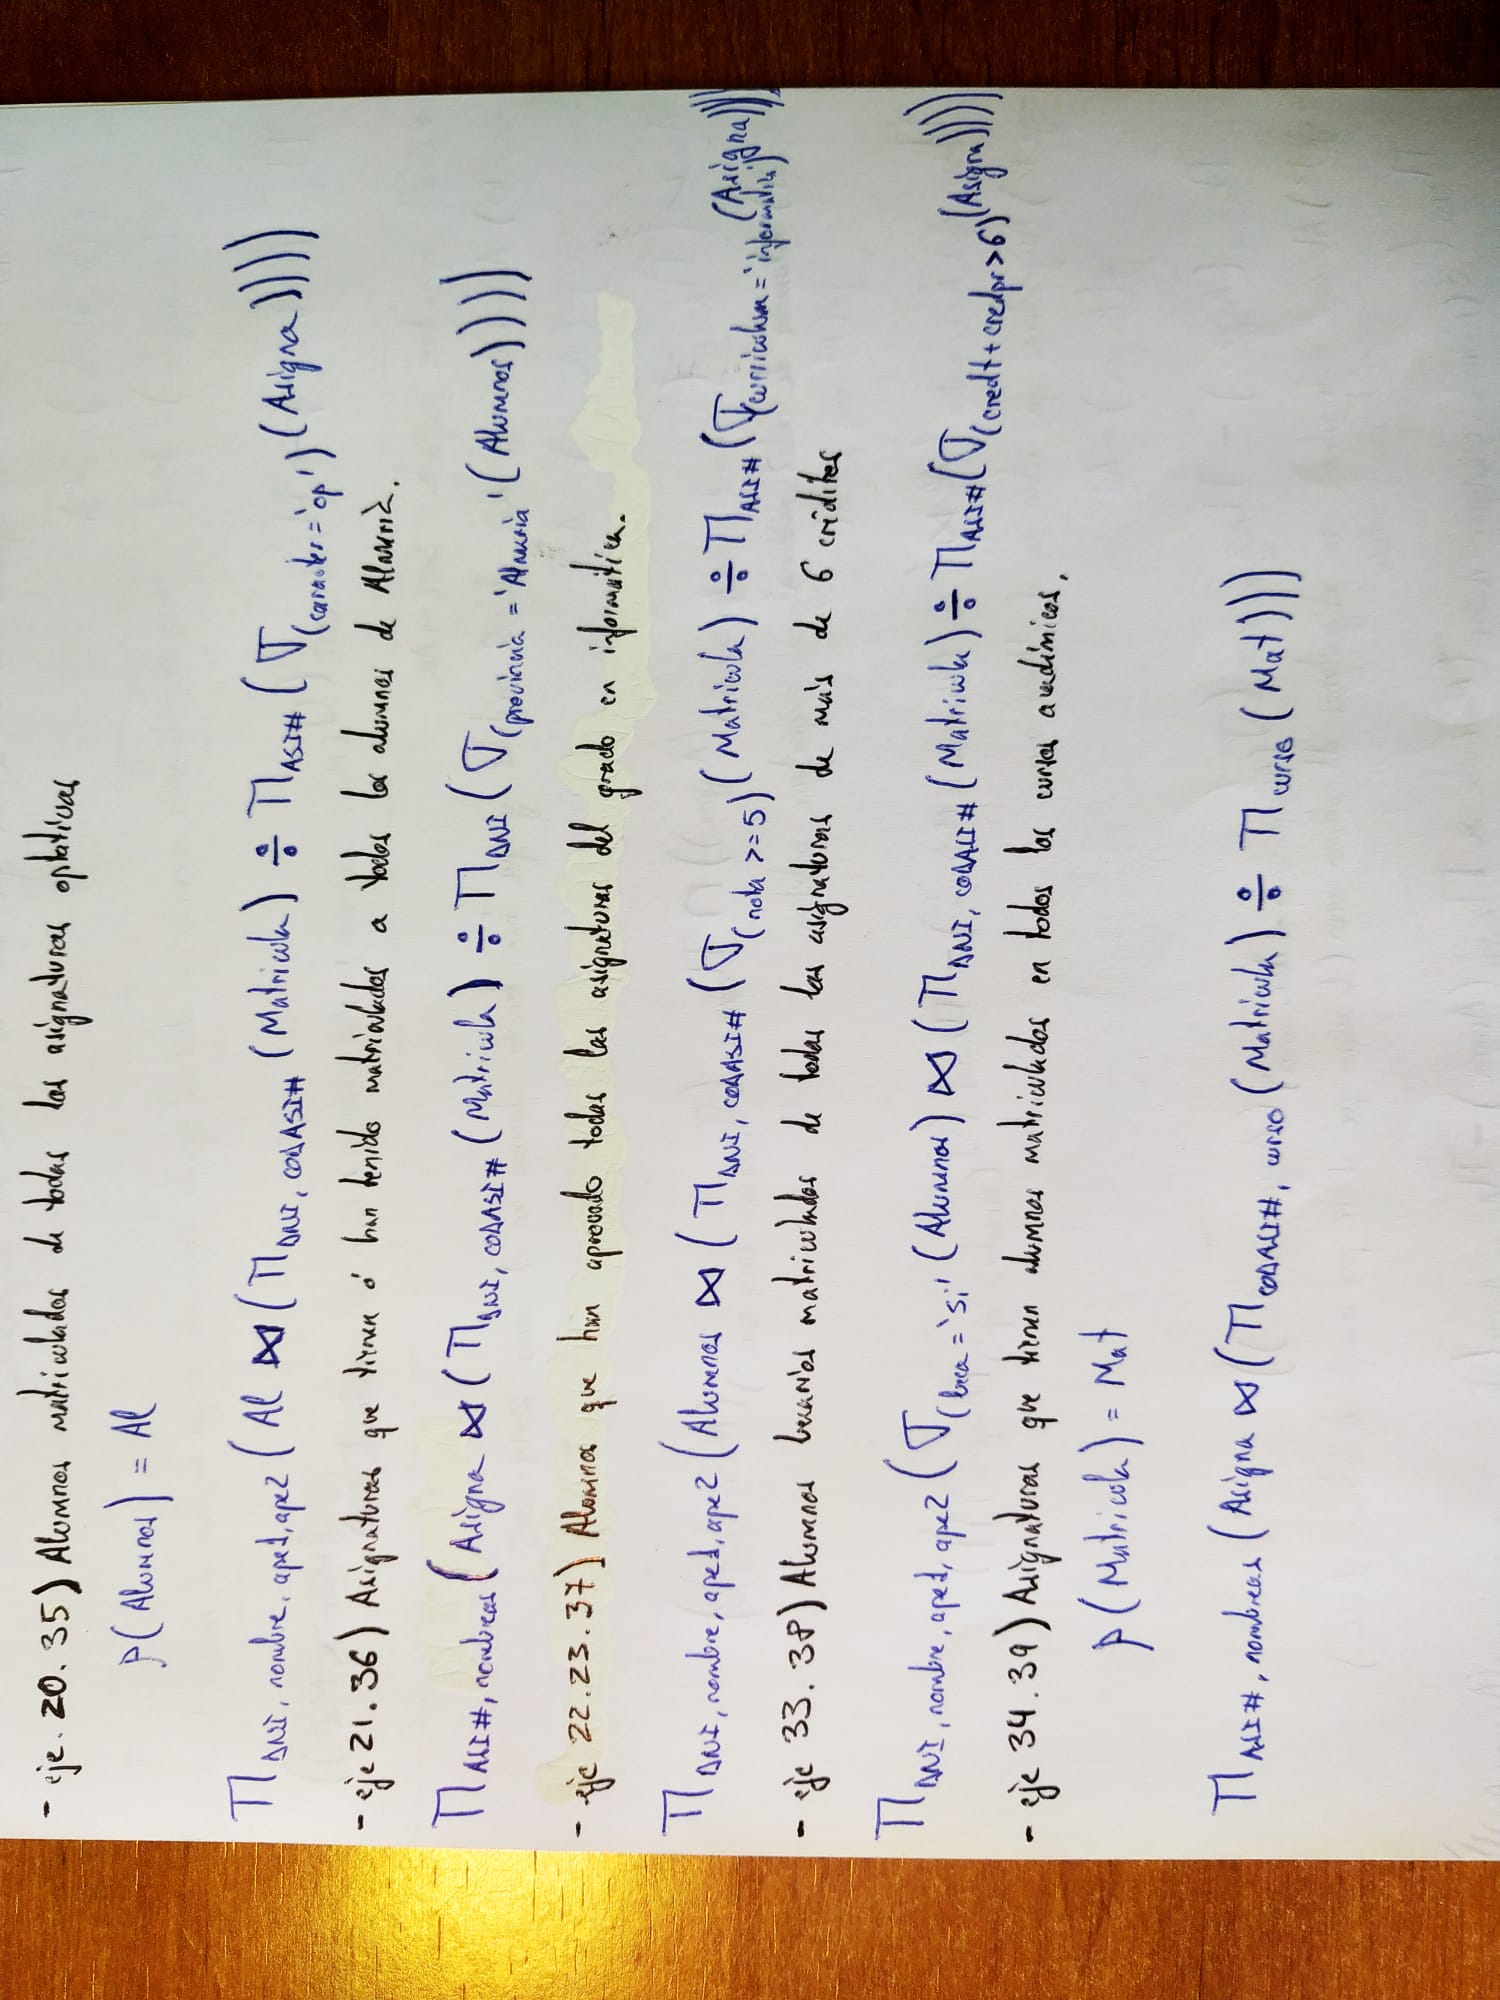 - eje. 20. 35) Alumnos matriculados de todas las asignaturas optativas
ρ(Alumnos) = Al
Π DNI, nombre, ape1, ape2 (Al ⋈ (Π DNI, CODASI# (Matricula) ÷ Π ASI# (σ (caracter='op') (Asigna)))))
- eje 21. 36) Asignaturas que tienen ó han tenido matriculados a todos los alumnos de Almería.
Π ASI#, nombreas (Asigna ⋈ (Π DNI, CODASI# (Matricula) ÷ Π DNI (σ (provincia = 'Almeria' (Alumnos)))))
- eje 22. 23. 37) Alumnos que han aprovado todas las asignaturas del grado en informática.
Π DNI, nombre, ape1, ape2 (Alumnos ⋈ (Π DNI, CODASI# (σ (nota >= 5) (Matricula) ÷ Π ASI# (σ (curriculum = 'informatica') (Asigna))))
- eje 33. 38) Alumnos becarios matriculados de todas las asignaturas de más de 6 créditos
Π DNI, nombre, ape1, ape2 (σ (beca = 'si' (Alumnos) ⋈ (Π DNI, CODASI# (Matricula) ÷ Π ASI# (σ (credt + credpr > 6) (Asigna)))))
- eje 34. 39) Asignaturas que tienen alumnos matriculados en todos los cursos académicos.
ρ (Matricula) = Mat
Π ASI#, nombreas (Asigna ⋈ (Π CODASI#, curso (Matricula) ÷ Π curso (Mat))))